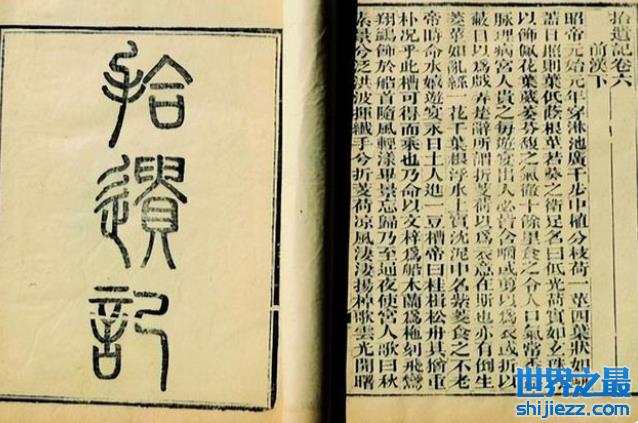 拾遺記
拾遺記卷六
前漢下
昭帝元始元年穿淋池廣千步中植分枝荷一莖四葉狀如駢
蓋日照則葉低蔭根莖若葵之衞足名曰低光荷實如玄珠
以飾佩花葉葳萎芬馥之氣徹十餘里食之令人口氣常香
脉理病宮人貴之每遊宴出入必皆含嚼或剪以爲衣或折以
蔽日以爲戲弄楚辭所謂折芰荷以爲衣意在斯也亦有倒生
菱莖如亂絲一花千葉根浮水上實沈泥中名紫菱食之不老
帝時命水嬉遊宴永日土人進一豆槽帝曰桂楫松舟其猶重
朴况乎此槽可得而乘也乃命以文梓爲船木蘭爲柂刻飛鸞
翔鷁飾於船首隨風輕漾畢景忘歸乃至通夜使宮人歌曰秋
素景兮泛洪波揮纖手兮折芰荷凉風淒淒揚棹歌雲光開曙
世界之最
shijiezz.com